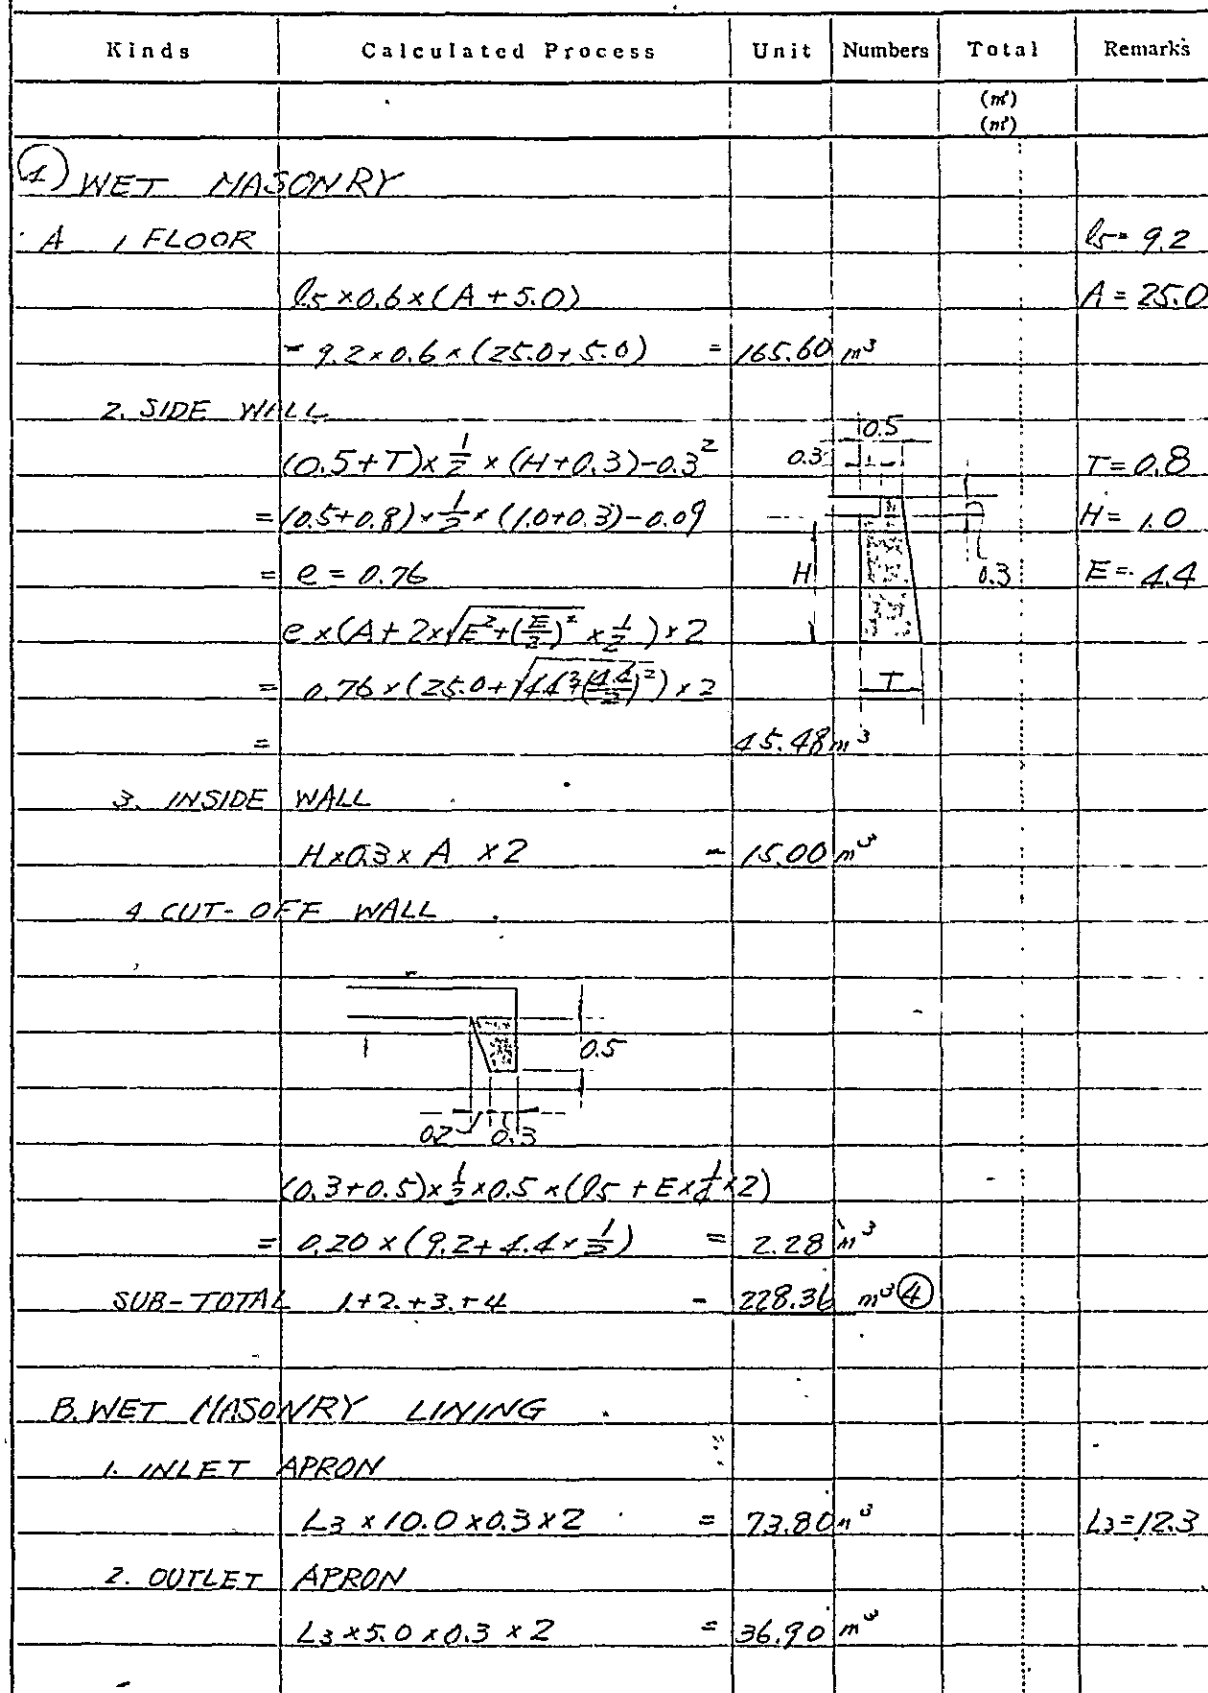 Kinds Calculated Process Unit Numbers Total Remarks
(m²)
(m³)
① WET MASONRY
A 1 FLOOR l5= 9.2
l5×0.6×(A+5.0) A=25.0
= 9.2×0.6×(25.0+5.0) = 165.60 m³
2. SIDE WALL 0.5
(0.5+T)×1/2×(H+0.3)-0.3² 0.3 T=0.8
=(0.5+0.8)×1/2×(1.0+0.3)-0.09 H= 1.0
= e = 0.76 H 0.3 E= 4.4
e×(A+2×√E²+(E/2)²×1/2)×2
= 0.76×(25.0+√4.4²+(4.4/2)²)×2 T
= 45.48 m³
3. INSIDE WALL
H×0.3×A ×2 = 15.00 m³
4 CUT-OFF WALL
0.5
0.2 0.3
(0.3+0.5)×1/2×0.5×(l5+E×1/4×2)
= 0.20×(9.2+4.4×1/2) = 2.28 m³
SUB-TOTAL 1+2.+3.+4 = 228.36 m³ ④
B. WET MASONRY LINING
1. INLET APRON
L3×10.0×0.3×2 = 73.80 m³ L3=12.3
2. OUTLET APRON
L3×5.0×0.3×2 = 36.90 m³